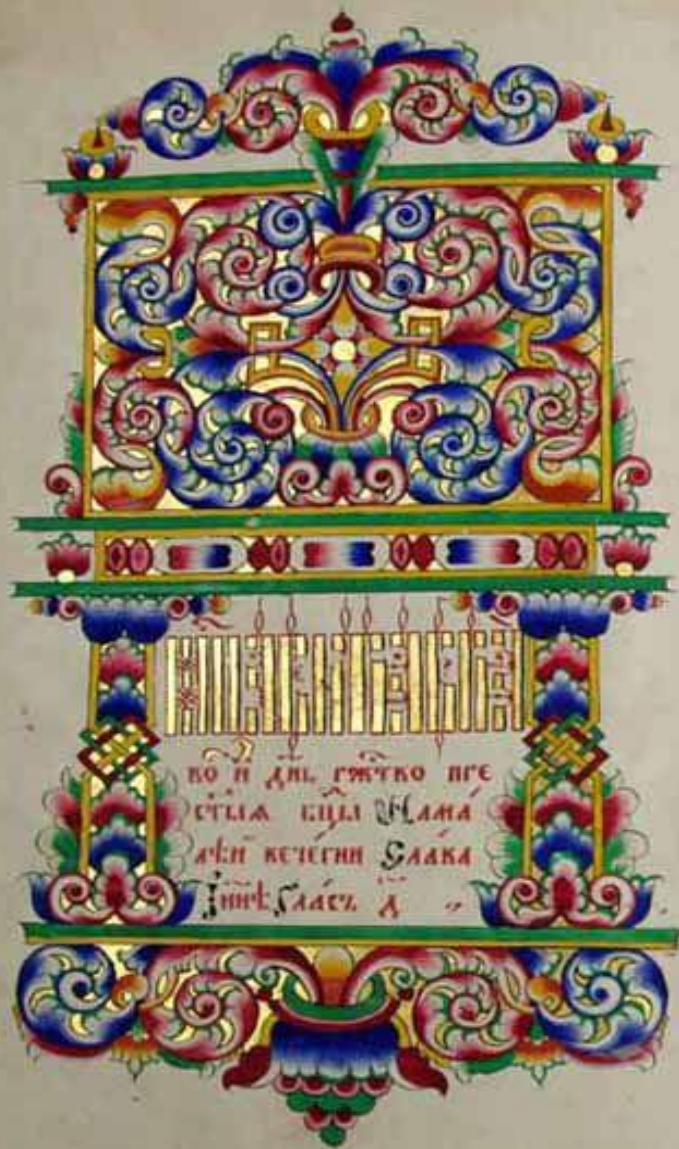 во и҃ дн҃ь. рж҃тво пре
ст҃ыѧ бц҃ы На ма́
лѣй вече́рни Сла́ва
І нн҃ѣ Гла́съ д҃